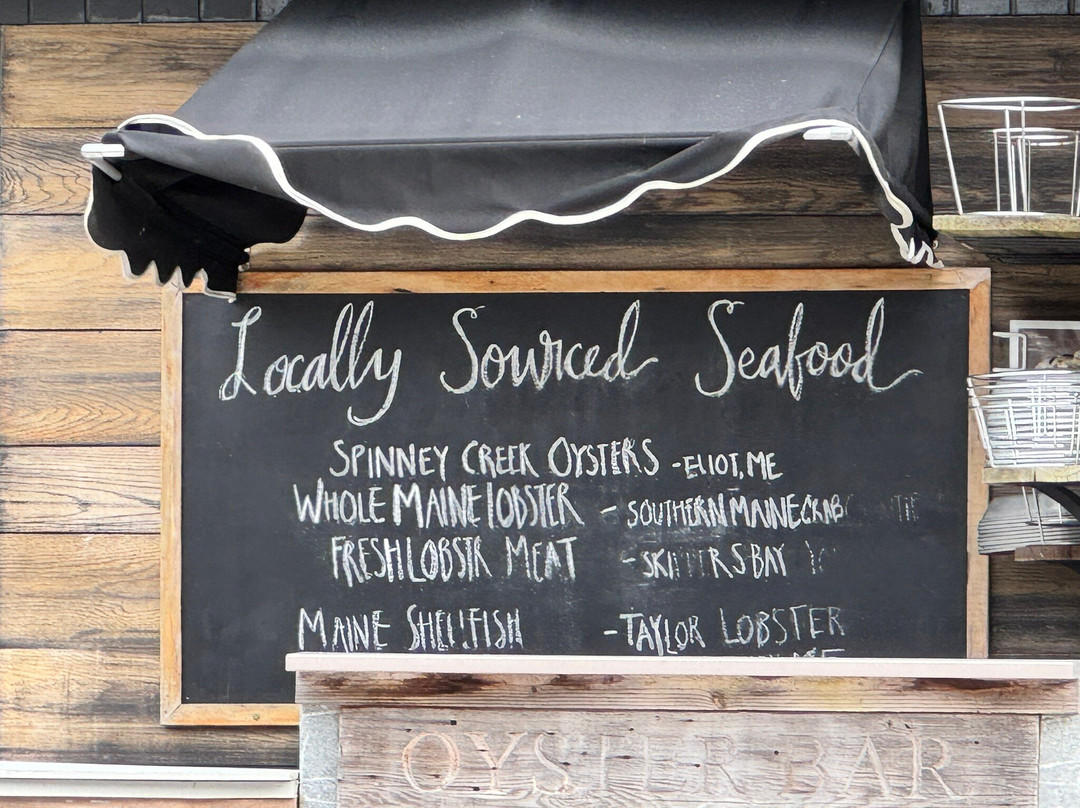 Locally Sourced Seafood
SPINNEY CREEK OYSTERS - ELIOT, ME
WHOLE MAINE LOBSTER - SOUTHERN MAINE CRAB
FRESH LOBSTR MEAT - BAY
MAINE SHELLFISH - TAYLOR LOBSTER
ME
OYSTER BAR